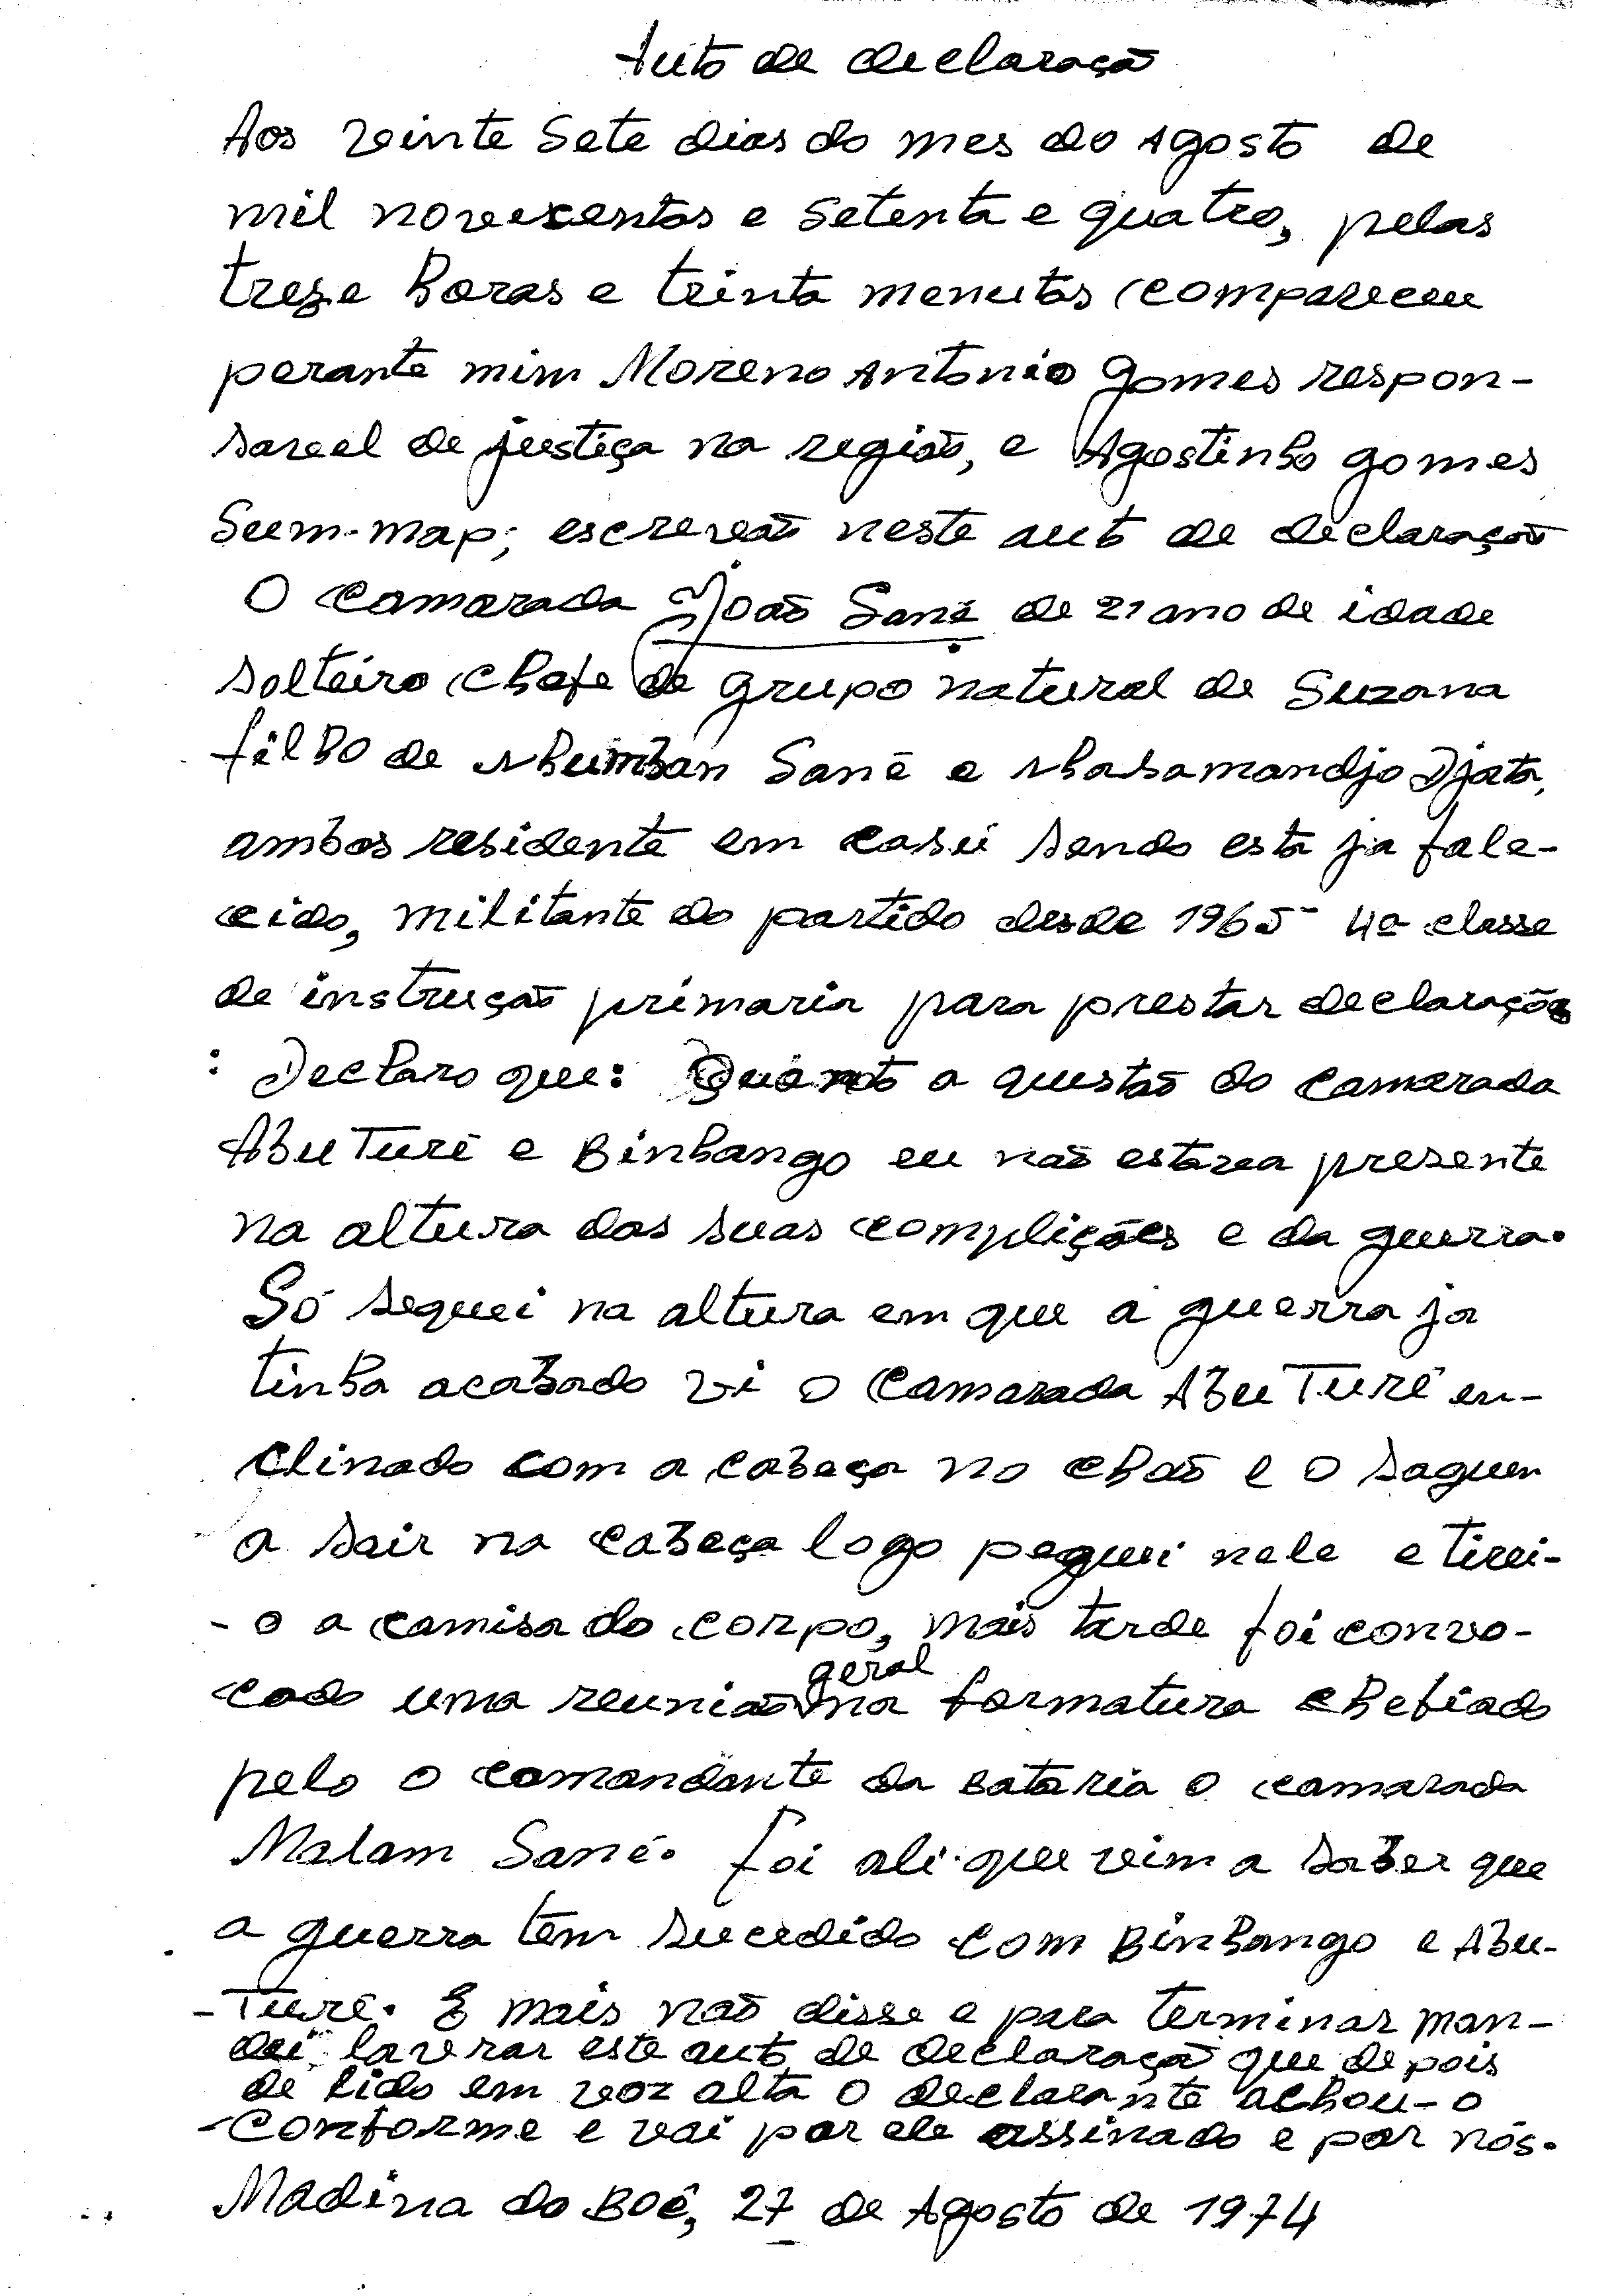 Auto de declaração
Aos veinte Sete dias do mes do Agosto de
mil novecentos e Setenta e quatro, pelas
treze horas e trinta menutos compareceu
perante mim Moreno Antonio Gomes respon-
savel de justiça na região, e Agostinho gomes
Sum-map; escrevão neste auto de declaração
O Camarada João Sané de 21 ano de idade
solteiro chefe de grupo natural de Suzana
filho de Nhumban Sané e Nhasamandjo Djata,
ambos residente em casú sendo esta ja fale-
cido, militante do partido desde 1965 4ª classe
de instrução primaria para prestar declarações
: Declaro que: Quanto a questão do Camarada
Abu Turé e Binhango eu não estava presente
na altura das suas complições e da guerra.
Só seguei na altura em que a guerra ja
tinha acabado vi o Camarada Abu Turé en-
clinado com a cabeça no chão e o saguen
a sair na cabeça logo peguei nele e tirei-
- o a camisa do corpo, mais tarde foi convo-
cado uma reunião geral na formatura chefiado
pelo o comandante da Bataria o camarada
Malam Sané. foi ali que vim a saber que
a guerra tem sucedido com Binhango e Abu-
- Turé. E mais não disse e para terminar man-
dei laverar este auto de declaração que depois
de lido em voz alta o declarante achou-o
- Conforme e vai por ele assinado e por nós.
Madina do Boé, 27 de Agosto de 1974